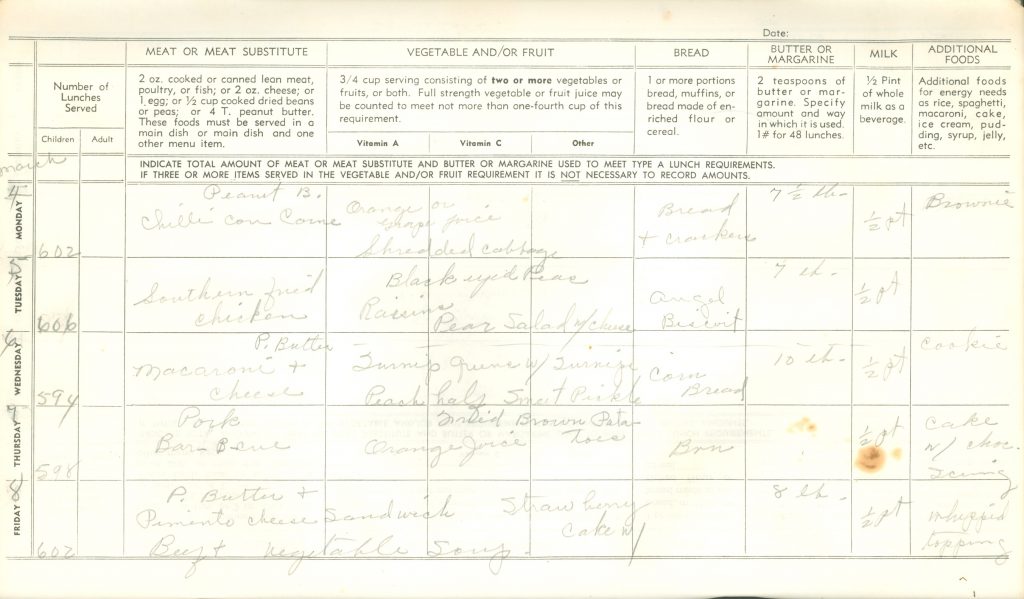 Date:
MEAT OR MEAT SUBSTITUTE
VEGETABLE AND/OR FRUIT
BREAD
BUTTER OR
MARGARINE
MILK
ADDITIONAL
FOODS
Number of
Lunches
Served
Children
Adult
2 oz. cooked or canned lean meat,
poultry, or fish; or 2 oz. cheese; or
1 egg; or ½ cup cooked dried beans
or peas; or 4 T. peanut butter.
These foods must be served in a
main dish or main dish and one
other menu item.
3/4 cup serving consisting of two or more vegetables or
fruits, or both. Full strength vegetable or fruit juice may
be counted to meet not more than one-fourth cup of this
requirement.
Vitamin A
Vitamin C
Other
1 or more portions
bread, muffins, or
bread made of en-
riched flour or
cereal.
2 teaspoons of
butter or mar-
garine. Specify
amount and way
in which it is used.
1# for 48 lunches.
½ Pint
of whole
milk as a
beverage.
Additional foods
for energy needs
as rice, spaghetti,
macaroni, cake,
ice cream, pud-
ding, syrup, jelly,
etc.
INDICATE TOTAL AMOUNT OF MEAT OR MEAT SUBSTITUTE AND BUTTER OR MARGARINE USED TO MEET TYPE A LUNCH REQUIREMENTS.
IF THREE OR MORE ITEMS SERVED IN THE VEGETABLE AND/OR FRUIT REQUIREMENT IT IS NOT NECESSARY TO RECORD AMOUNTS.
March
4
MONDAY
602
Peanut B.
Chilli con Carne
Orange or
grape juice
Shredded cabbage
Bread
+ crackers
7 ½ lb.
½ pt
Brownie
5
TUESDAY
606
Southern fried
chicken
Black eyed Peas
Raisins
Pear Salad w/cheese
Angel
Biscuit
7 lb.
½ pt
6
WEDNESDAY
594
P. Butter
Macaroni +
cheese
Turnip Greens w/ Turnips
Peach half Sweet Pickle
Corn
Bread
10 lb.
½ pt
Cookie
7
THURSDAY
598
Pork
Bar-B-cue
Brown Pota
toes
Orange Juice
Bun
½ pt
Cake
w/ choc.
Icing
8
FRIDAY
602
P. Butter +
Pimento cheese Sandwich
Beef + Vegetable Soup
Strawberry
Cake w/
8 lb.
½ pt
whipped
topping